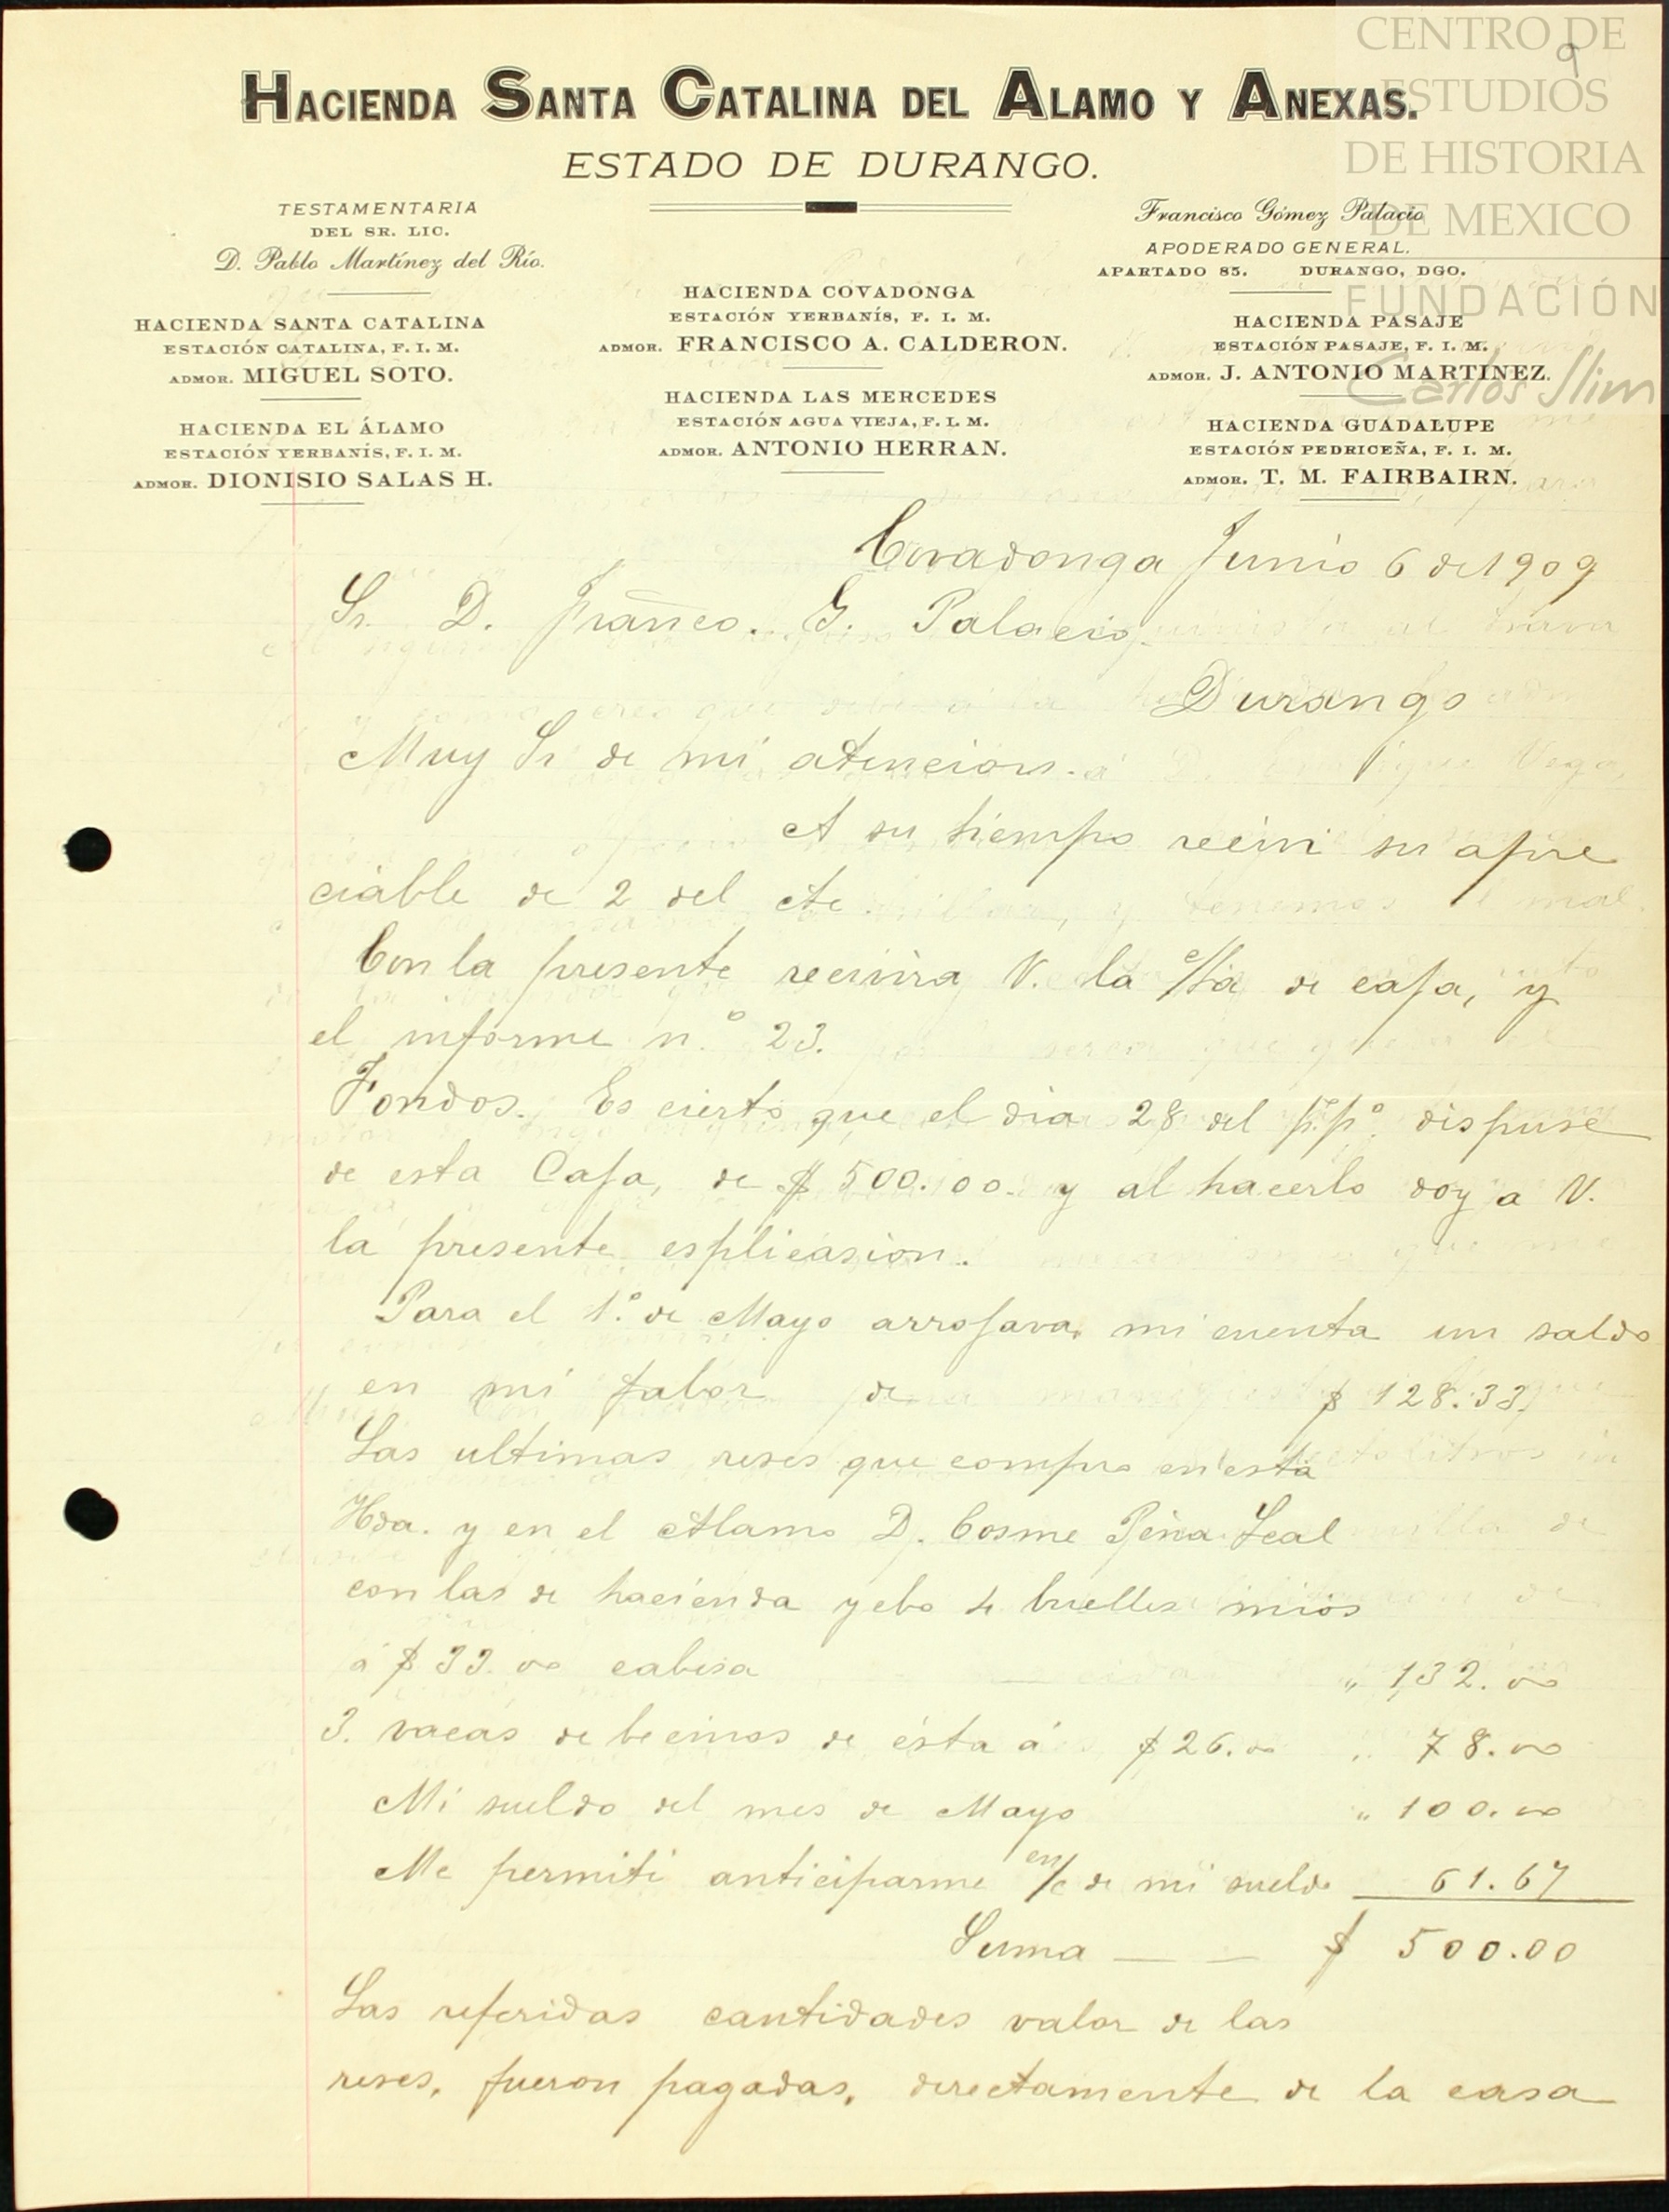 CENTRO DE
ESTUDIOS
DE HISTORIA
DE MEXICO
FUNDACIÓN
Carlos Slim
9
HACIENDA SANTA CATALINA DEL ALAMO Y ANEXAS.
ESTADO DE DURANGO.
TESTAMENTARIA
DEL SR. LIC.
D. Pablo Martínez del Río.
HACIENDA SANTA CATALINA
ESTACIÓN CATALINA, F. I. M.
ADMOR. MIGUEL SOTO.
HACIENDA EL ÁLAMO
ESTACIÓN YERBANÍS, F. I. M.
ADMOR. DIONISIO SALAS H.
HACIENDA COVADONGA
ESTACIÓN YERBANÍS, F. I. M.
ADMOR. FRANCISCO A. CALDERON.
HACIENDA LAS MERCEDES
ESTACIÓN AGUA VIEJA, F. I. M.
ADMOR. ANTONIO HERRAN.
Francisco Gómez Palacio
APODERADO GENERAL.
APARTADO 85. DURANGO, DGO.
HACIENDA PASAJE
ESTACIÓN PASAJE, F. I. M.
ADMOR. J. ANTONIO MARTINEZ.
HACIENDA GUADALUPE
ESTACIÓN PEDRICEÑA, F. I. M.
ADMOR. T. M. FAIRBAIRN.
Covadonga Junio 6 de 1909
Sr. D. Franco. G. Palacio.
Durango
Muy Sr de mi atencion.
A su tiempo recivi su apre
ciable de 2 del cte.
Con la presente recivira V. la c/ta de caja, y
el informe n.º 23.
Fondos. Es cierto que el dia 28 del p.pº. dispuse
de esta Caja, de $500.00. y al hacerlo doy a V.
la presente esplicasion.
Para el 1.º de Mayo arrojava mi cuenta un saldo
en mi fabor de $ 128.33
Las ultimas reses que compro en esta
Hda. y en el Alamo D. Cosme Peña Leal
con las de hacienda yebo 4 buelles mios
á $33.00 cabesa " 132.00
3. vacas de becinos de ésta á $26.00 " 78.00
Mi sueldo del mes de Mayo " 100.00
Me permiti anticiparme en/c de mi sueldo 61.67
Suma — — $ 500.00
Las referidas cantidades valor de las
reses, fueron pagadas, directamente de la casa